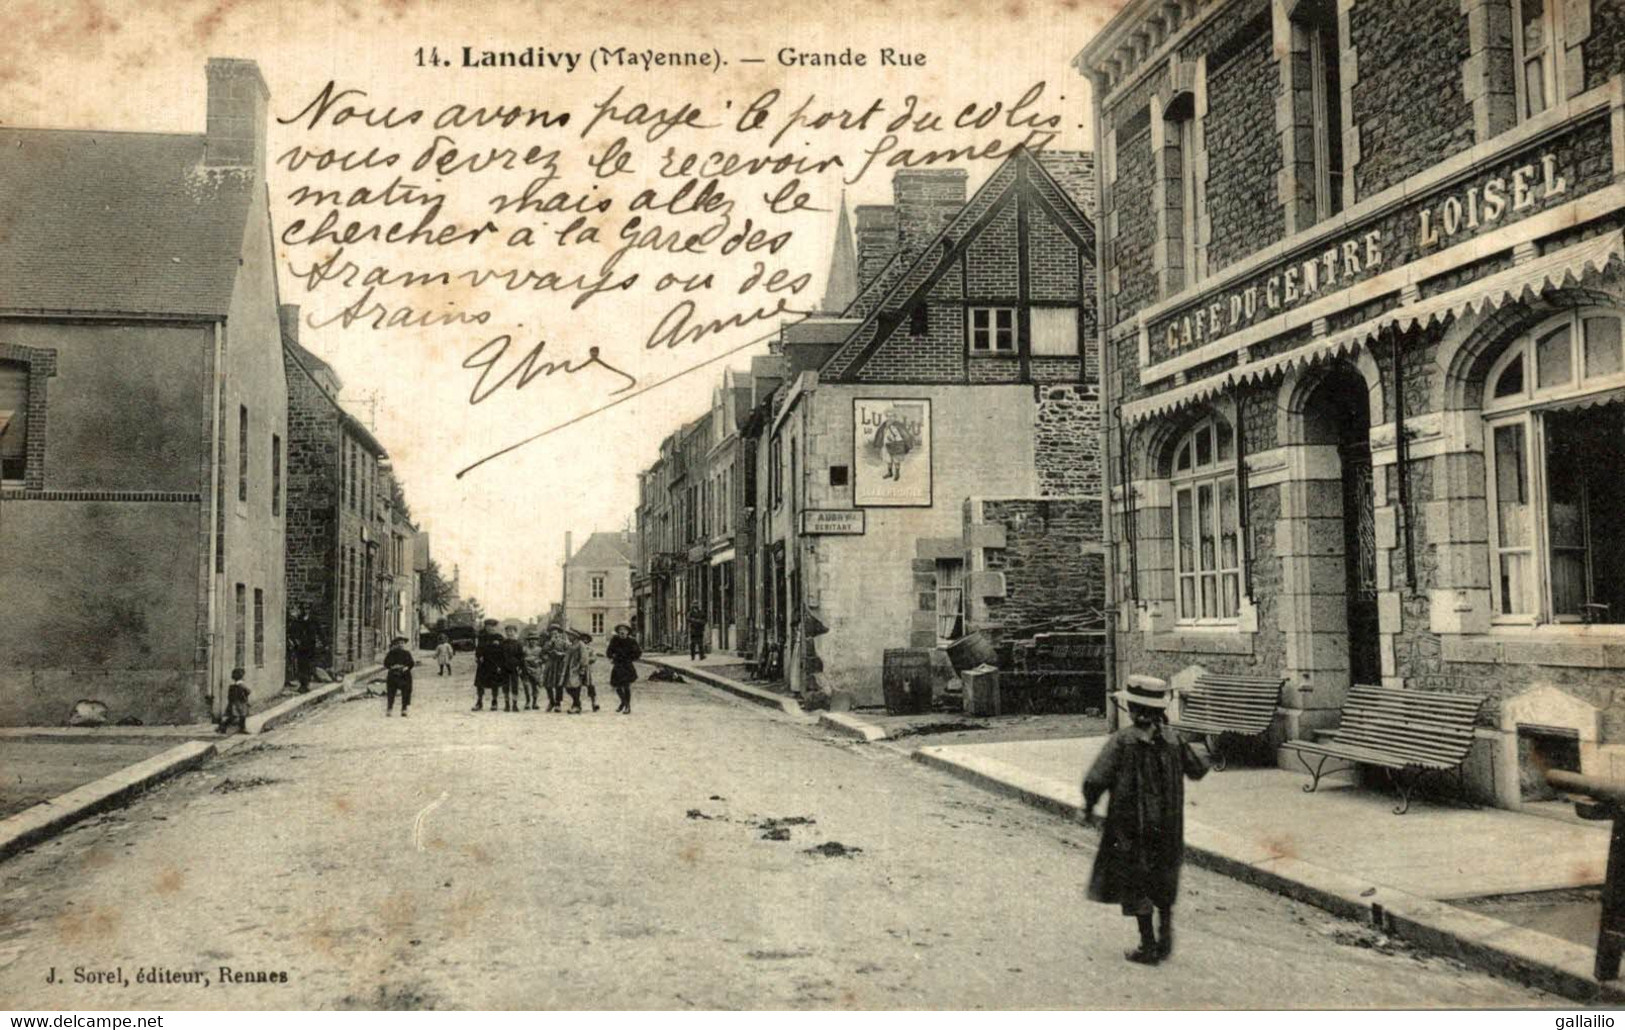 14. Landivy (Mayenne). — Grande Rue
Nous avons payé le port du colis.
vous devrez le recevoir Samedi
matin mais allez le
chercher à la Gare des
tramvvays ou des
trains.
Une Amie
LU
LU
AUBRY
DEBITANT
CAFE DU CENTRE LOISEL
J. Sorel, éditeur, Rennes
delcampe.net
gallailio